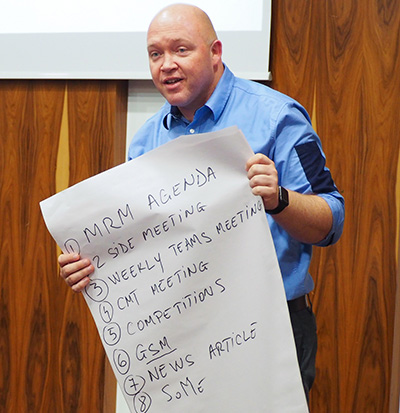 1 MRM AGENDA
2 SIDE MEETING
3 WEEKLY TEAMS MEETING
4 CMT MEETING
5 COMPETITIONS
6 GSM
7 NEWS ARTICLE
8 SoMe